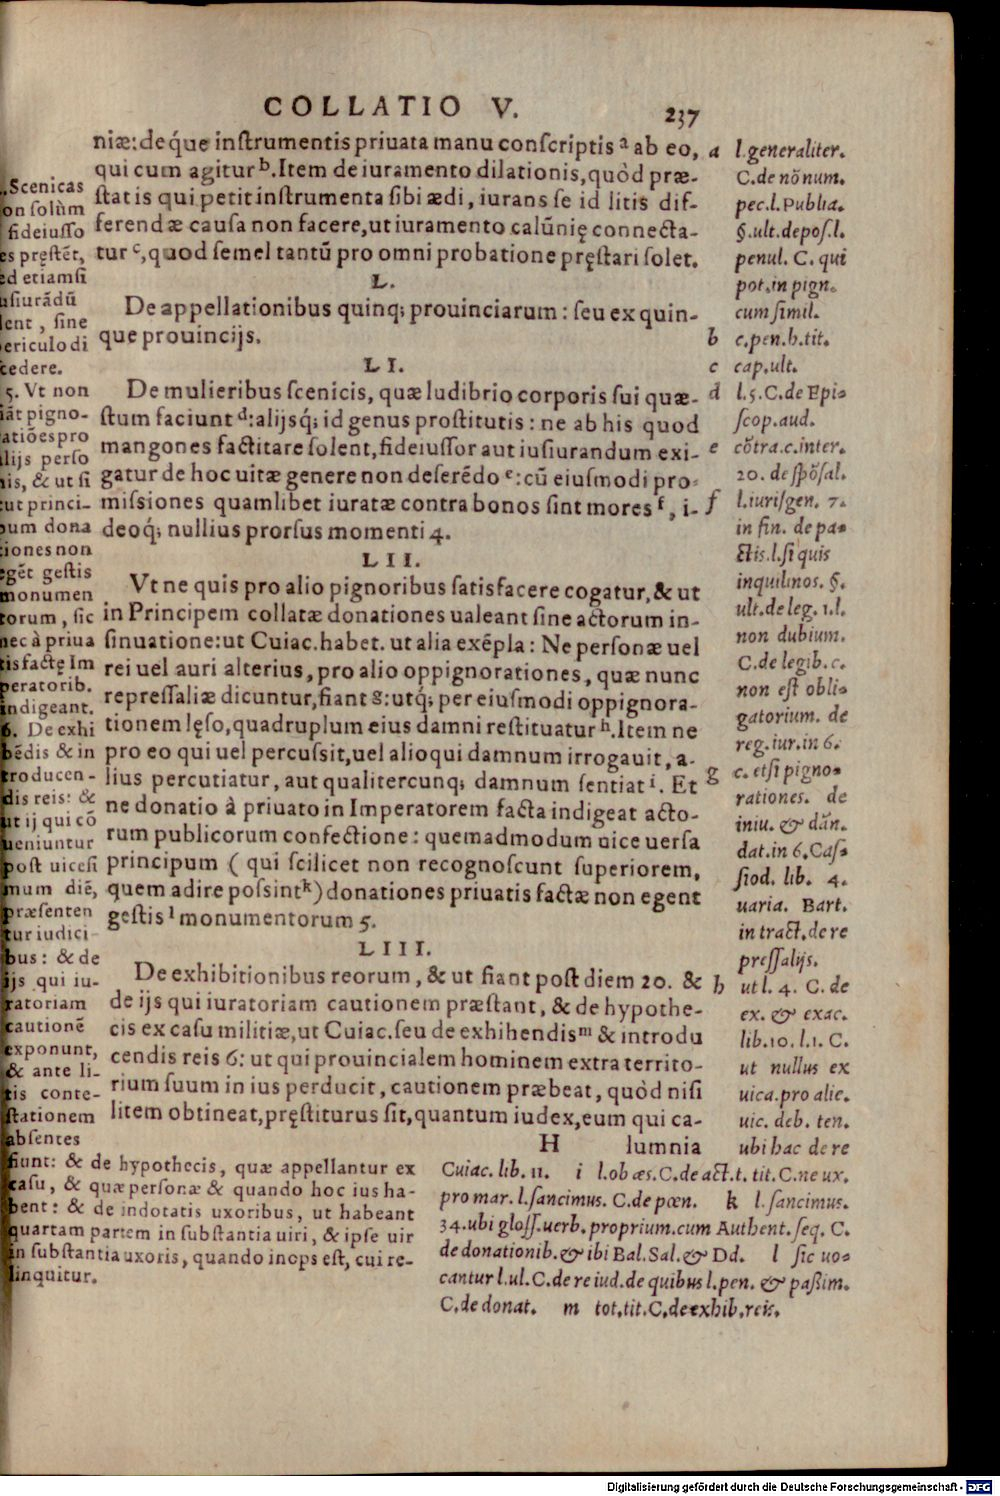 COLLATIO V. 237
niæ: deq́ue instrumentis priuata manu conscriptis a ab eo,
qui cum agitur b. Item de iuramento dilationis, quòd præ-
stat is qui petit instrumenta sibi ædi, iurans se id litis dif-
ferendæ causa non facere, ut iuramento calũnię connecta-
tur c, quod semel tantũ pro omni probatione pręstari solet.
L.
De appellationibus quinq; prouinciarum: seu ex quin-
que prouincijs.
LI.
De mulieribus scenicis, quæ ludibrio corporis sui quæ-
stum faciunt d: alijsq́; id genus prostitutis: ne ab his quod
mangones factitare solent, fideiussor aut iusiurandum exi-
gatur de hoc uitæ genere non deserẽdo e: cũ eiusmodi pro-
missiones quamlibet iuratæ contra bonos sint mores f, i-
deoq́; nullius prorsus momenti 4.
LII.
Vt ne quis pro alio pignoribus satisfacere cogatur, & ut
in Principem collatæ donationes ualeant sine actorum in-
sinuatione: ut Cuiac. habet. ut alia exẽpla: Ne personæ uel
rei uel auri alterius, pro alio oppignorationes, quæ nunc
repressaliæ dicuntur, fiant g: utq́; per eiusmodi oppignora-
tionem lęso, quadruplum eius damni restituatur h. Item ne
pro eo qui uel percussit, uel alioqui damnum irrogauit, a-
lius percutiatur, aut qualitercunq; damnum sentiat i. Et
ne donatio à priuato in Imperatorem facta indigeat acto-
rum publicorum confectione: quemadmodum uice uersa
principum (qui scilicet non recognoscunt superiorem,
quem adire possint k) donationes priuatis factæ non egent
gestis l monumentorum 5.
LIII.
De exhibitionibus reorum, & ut fiant post diem 20. &
de ijs qui iuratoriam cautionem præstant, & de hypothe-
cis ex casu militiæ, ut Cuiac. seu de exhihendis m & introdu
cendis reis 6: ut qui prouincialem hominem extra territo-
rium suum in ius perducit, cautionem præbeat, quòd nisi
litem obtineat, pręstiturus sit, quantum iudex, eum qui ca-
H lumnia
.Scenicas
on solùm
fideiusso
es pręstẽt,
ed etiamsi
usiurãdũ
lent, sine
ericulo di
cedere.
5. Vt non
iãt pigno-
atiões pro
lijs perso
nis, & ut si
cut princi-
pum dona
tiones non
egẽt gestis
monumen
torum, sic
nec à priua
tis factę Im
peratorib.
indigeant.
6. De exhi
bẽdis & in
troducen-
dis reis: &
ut ij qui cõ
ueniuntur
post uicesi
mum diẽ,
præsenten
tur iudici-
bus: & de
ijs qui iu-
ratoriam
cautionẽ
exponunt,
& ante li-
tis conte-
stationem
absentes
fiunt: & de hypothecis, quæ appellantur ex
casu, & quæ personæ & quando hoc ius ha-
bent: & de indotatis uxoribus, ut habeant
quartam partem in substantia uiri, & ipse uir
in substantia uxoris, quando inops est, cui re-
linquitur.
a l. generaliter.
C. de nõ num.
pec. l. Publia.
§. ult. depos. l.
penul. C. qui
pot. in pign.
cum simil.
b c. pen. h. tit.
c cap. ult.
d l. 5. C. de Epi-
scop. aud.
e cõtra. c. inter.
20. de spõsal.
f l. iurisgen. 7.
in fin. de pa-
ctis. l. si quis
inquilinos. §.
ult. de leg. 1. l.
non dubium.
C. de legib. c.
non est obli-
gatorium. de
reg. iur. in 6.
g c. etsi pigno-
rationes. de
iniu. & dãn.
dat. in 6. Cas-
siod. lib. 4.
uaria. Bart.
in tract. de re
pressalijs.
h ut l. 4. C. de
ex. & exac.
lib. 10. l. 1. C.
ut nullus ex
uica. pro alie.
uic. deb. ten.
ubi hac de re
Cuiac. lib. 11. i l. ob æs. C. de act. t. tit. C. ne ux.
pro mar. l. sancimus. C. de pœn. k l. sancimus.
34. ubi gloss. uerb. proprium. cum Authent. seq. C.
de donationib. & ibi Bal. Sal. & Dd. l sic uo-
cantur l. ul. C. de re iud. de quibus l. pen. & passim.
C. de donat. m tot. tit. C. de exhib. reis.
Digitalisierung gefördert durch die Deutsche Forschungsgemeinschaft - DFG